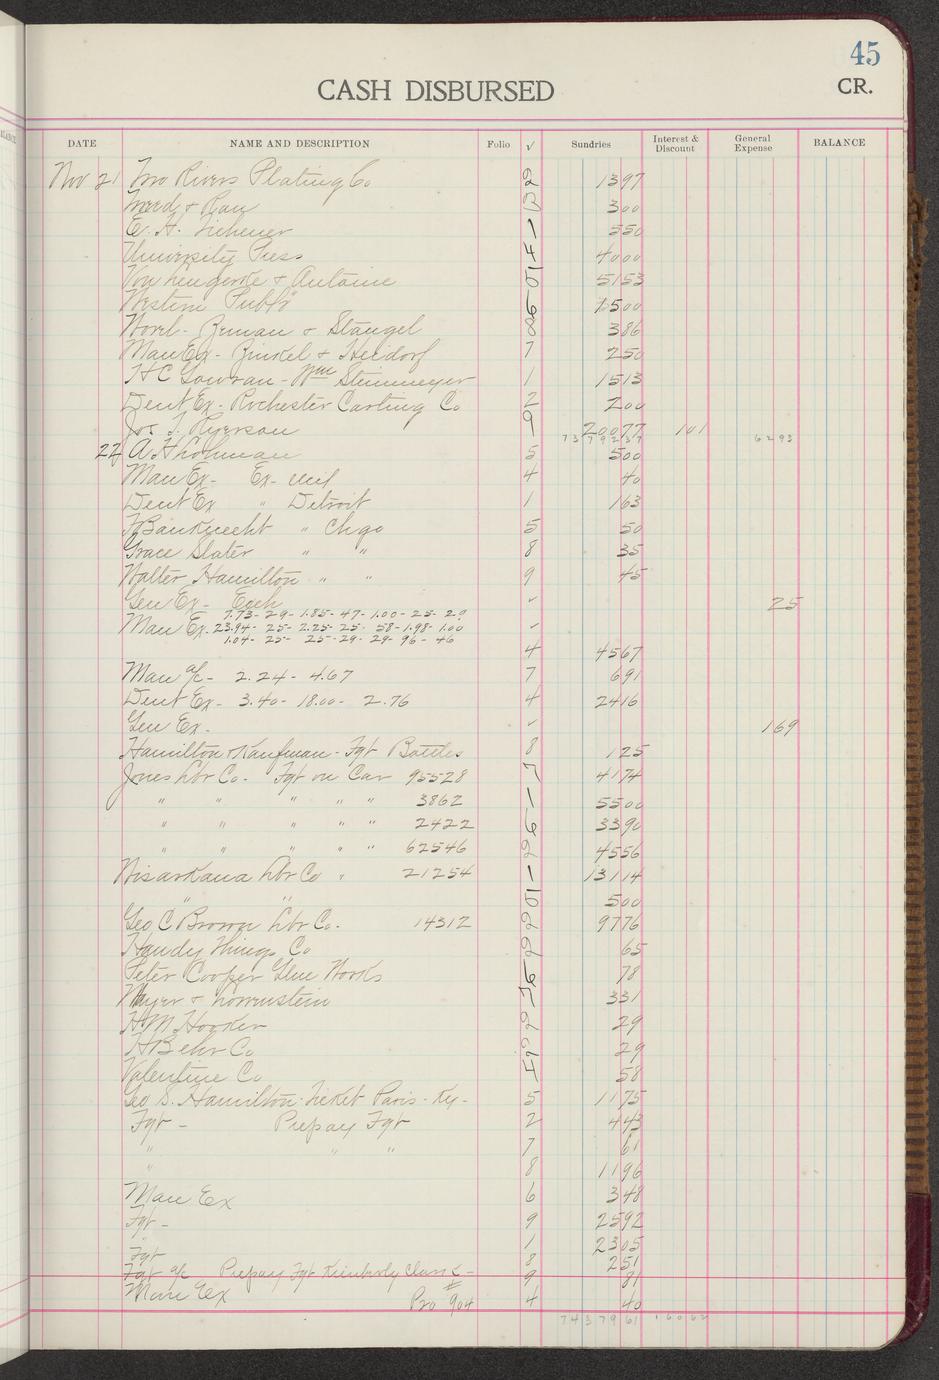 45
CASH DISBURSED
CR.
DATE NAME AND DESCRIPTION Folio ✓ Sundries Interest & Discount General Expense BALANCE
Nov 21 Two Rivers Plating Co 2 1397
& Rau 300
E. H. 1 550
University Press 4 4000
Von Lengerke & Antoine 5153
Western Publ' 6 1500
Novel- Zeman & Stangel 386
Man Ex- Zinkel & Heidorf 7 250
H C Gowran - Wm Steinmeyer 1 1513
Dent Ex- Rochester Casting Co 2 200
Jos. T. Ryerson 9 20077 101
7379237 6293
22 A. F. Lohman 5 500
Man Ex- Ex- Mil 4 40
Dent Ex " Detroit 1 163
F Bauknecht " Chgo 5 50
Grace Slater " " 8 35
Walter Hamilton " " 9 45
Gen Ex- Exch ✓ 25
7.73- 29- 1.85- 47- 1.00- 25- 29
Man Ex- 23.94- 25- 2.25- 25- 58- 1.98- 1.00 ✓
1.04- 25- 25- 29- 29- 96- 46
4 4567
Man a/c- 2.24- 4.67 7 691
Dent Ex- 3.40- 18.00- 2.76 4 2416
Gen Ex- ✓ 169
Hamilton & Kaufman- Fgt Bottles 8 125
Jones Lbr Co. Fgt on Car 95528 7 4174
" " " " " 3862 1 5500
" " " " " 2422 6 3390
" " " " " 62546 2 4556
Wisarkana Lbr Co " 21254 1 13114
" " 500
Geo C Brown Lbr Co. 14312 2 9776
Handy Things Co 2 65
Peter Cooper Glue Works 6 78
Mayer & Lowenstein 7 331
H. M. Hooker 2 29
H Behr Co 2 29
Valentine Co 4 58
Geo S. Hamilton- Ticket Paris- Ky- 5 1175
Fgt - Prepay Fgt 2 443
" " " 7 61
" 8 1196
Man Ex 6 348
Fgt - 9 2592
1 2305
Fgt 8 251
Fgt a/c Prepay Fgt Kimberly Clark - 9 81
Man Ex Pro # 904 4 40
7437961 16062